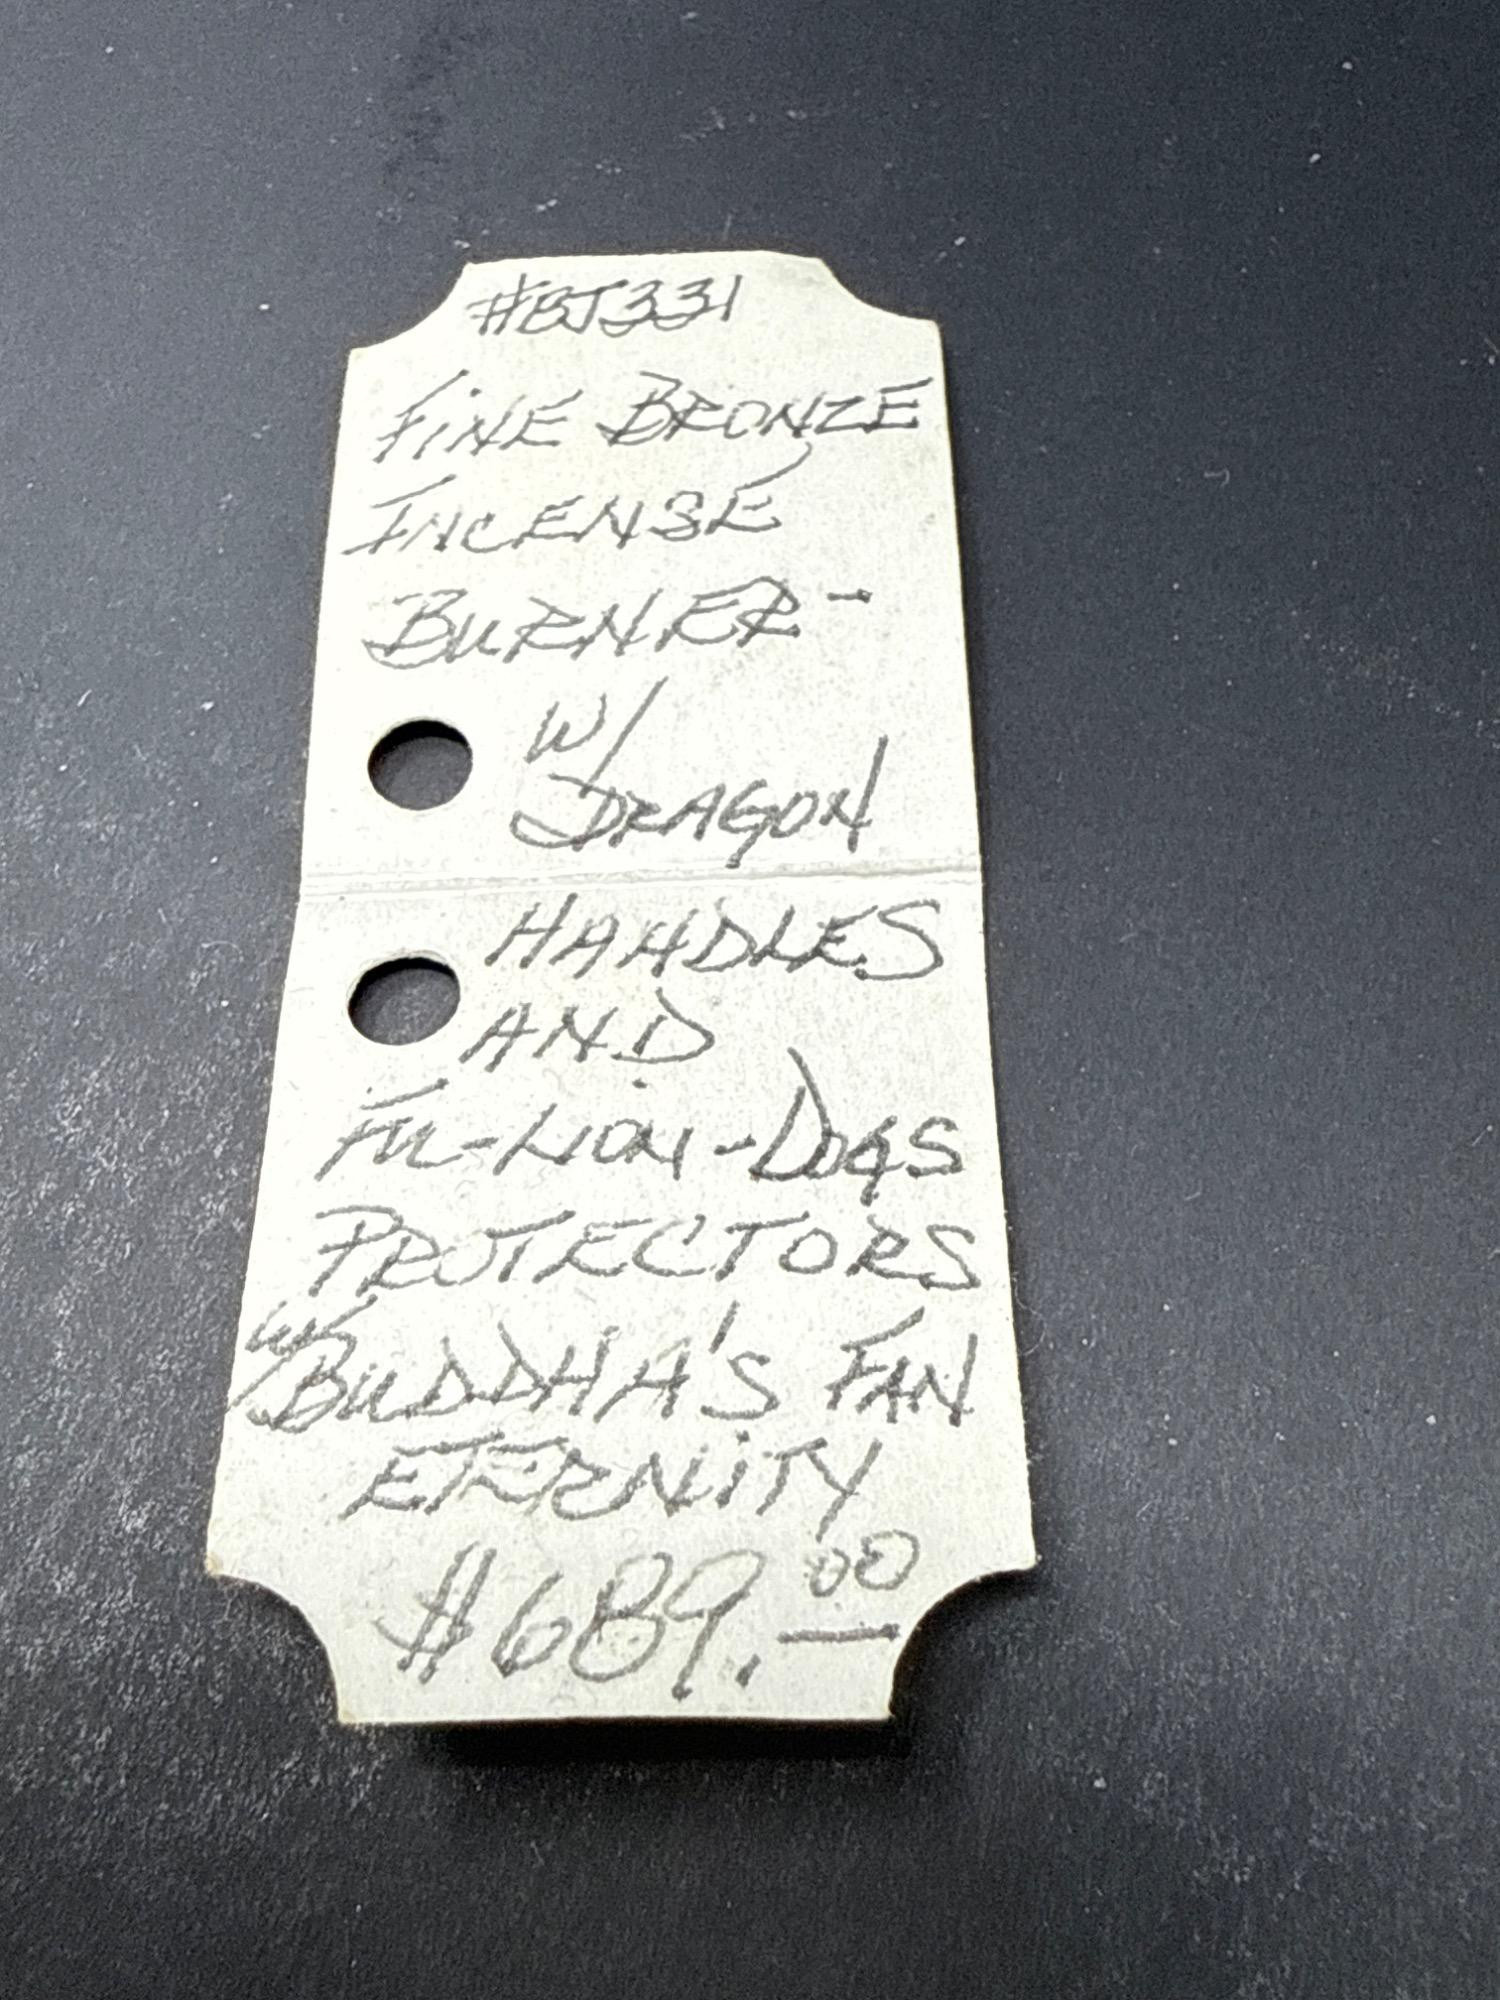 #BJ331
FINE BRONZE
INCENSE
BURNER-
W/
DRAGON
HANDLES
AND
FU-LION-DOGS
PROTECTORS
W/BUDDHA'S FAN
ETERNITY
$689.00